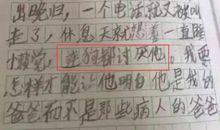 出晚归，一个电话就又被叫
走了，休息天就想着一直睡
懒觉，连狗都讨厌他。我要
怎样才能让他明白他是我的
爸爸而不是那些病人的爸爸